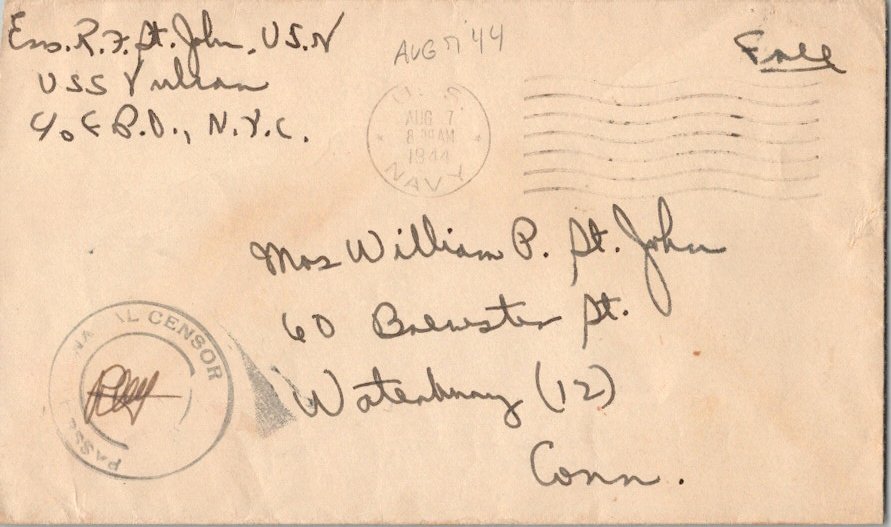 Ens. R. F. St. John, U.S.N
USS Vulcan
c/o F.P.O., N.Y.C.
AUG 7 '44
Free
U.S.
AUG 7
8 AM
1944
NAVY
Mrs William P. St. John
60 Brewster St.
Waterbury (12)
Conn.
PASSED NAVAL CENSOR